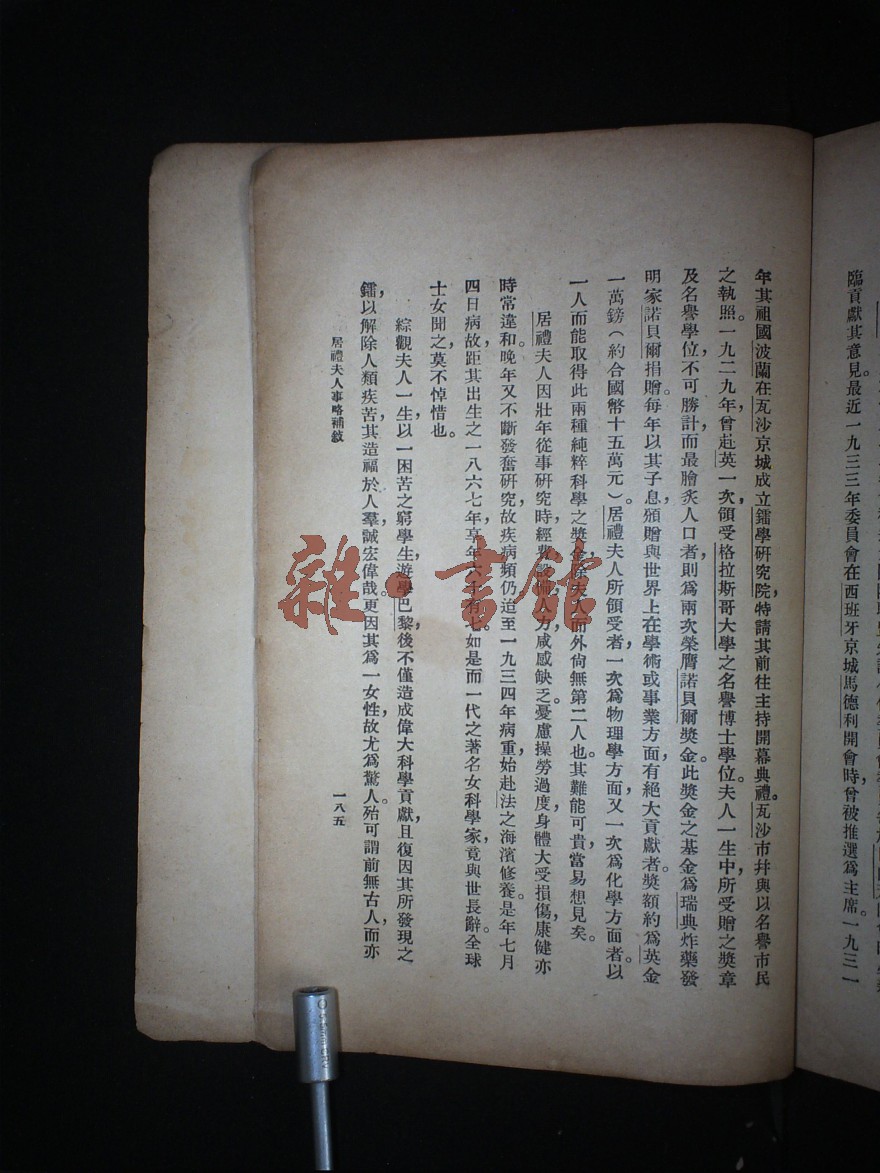 臨貢獻其意見。最近一九三三年委員會在西班牙京城馬德利開會時，曾被推選爲主席。一九三一
年其祖國波蘭在瓦沙京城成立鐳學研究院，特請其前往主持開幕典禮。瓦沙市幷與以名譽市民
之執照。一九二九年，曾赴英一次，領受格拉斯哥大學之名譽博士學位。夫人一生中所受贈之獎章
及名譽學位，不可勝計，而最膾炙人口者，則爲兩次榮膺諾貝爾獎金。此獎金之基金爲瑞典炸藥發
明家諾貝爾捐贈，每年以其子息頒贈與世界上在學術或事業方面，有絕大貢獻者。獎額約爲英金
一萬鎊（約合國幣十五萬元）。居禮夫人所領受者，一次爲物理學方面，又一次爲化學方面者。以
一人而能取得此兩種純粹科學之獎金，除夫人而外，尙無第二人也。其難能可貴，當易想見矣。
居禮夫人因壯年從事研究時，經費設備，人力咸感缺乏。憂慮操勞過度，身體大受損傷，康健亦
時常違和。晚年又不斷發奮研究，故疾病頻仍，迨至一九三四年病重，始赴法之海濱修養。是年七月
四日病故，距其出生之一八六七年，享年六十有七。如是而一代之著名女科學家，竟與世長辭。全球
士女聞之，莫不悼惜也。
綜觀夫人一生，以一困苦之窮學生，遊學巴黎後，不僅造成偉大科學貢獻，且復因其所發現之
鐳，以解除人類疾苦，其造福於人羣，誠宏偉哉。更因其爲一女性，故尤爲驚人。殆可謂前無古人，而亦
居禮夫人事略補敍
一八五
雜·書館